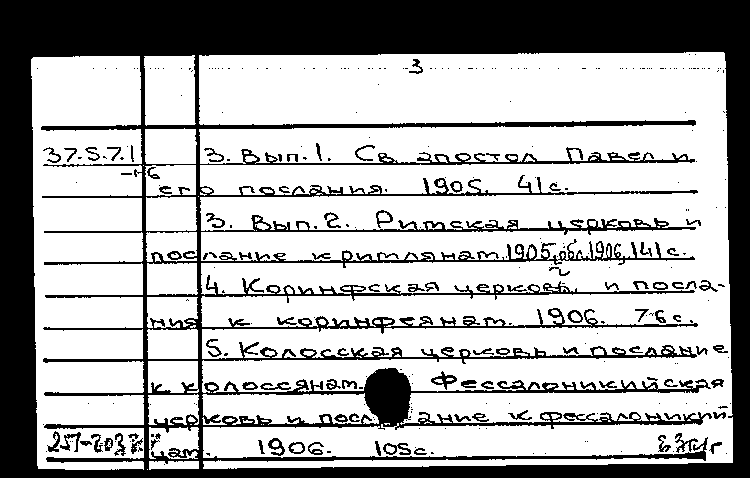 3
37.5.7.1 3. Вып.1. Св. апостол Павел и
-1÷6 его послания. 1905. 41с.
3. Вып.2. Римская церковь и
послание к римлянам. 1905, обл. 1906, 141с.
4. Коринфская церковь и посла-
ния к коринфеянам. 1906. 76с.
5. Колосская церковь и послание
к колоссянам. Фессалоникийская
церковь и послание к фессалоникий-
цам. 1906. 105с.